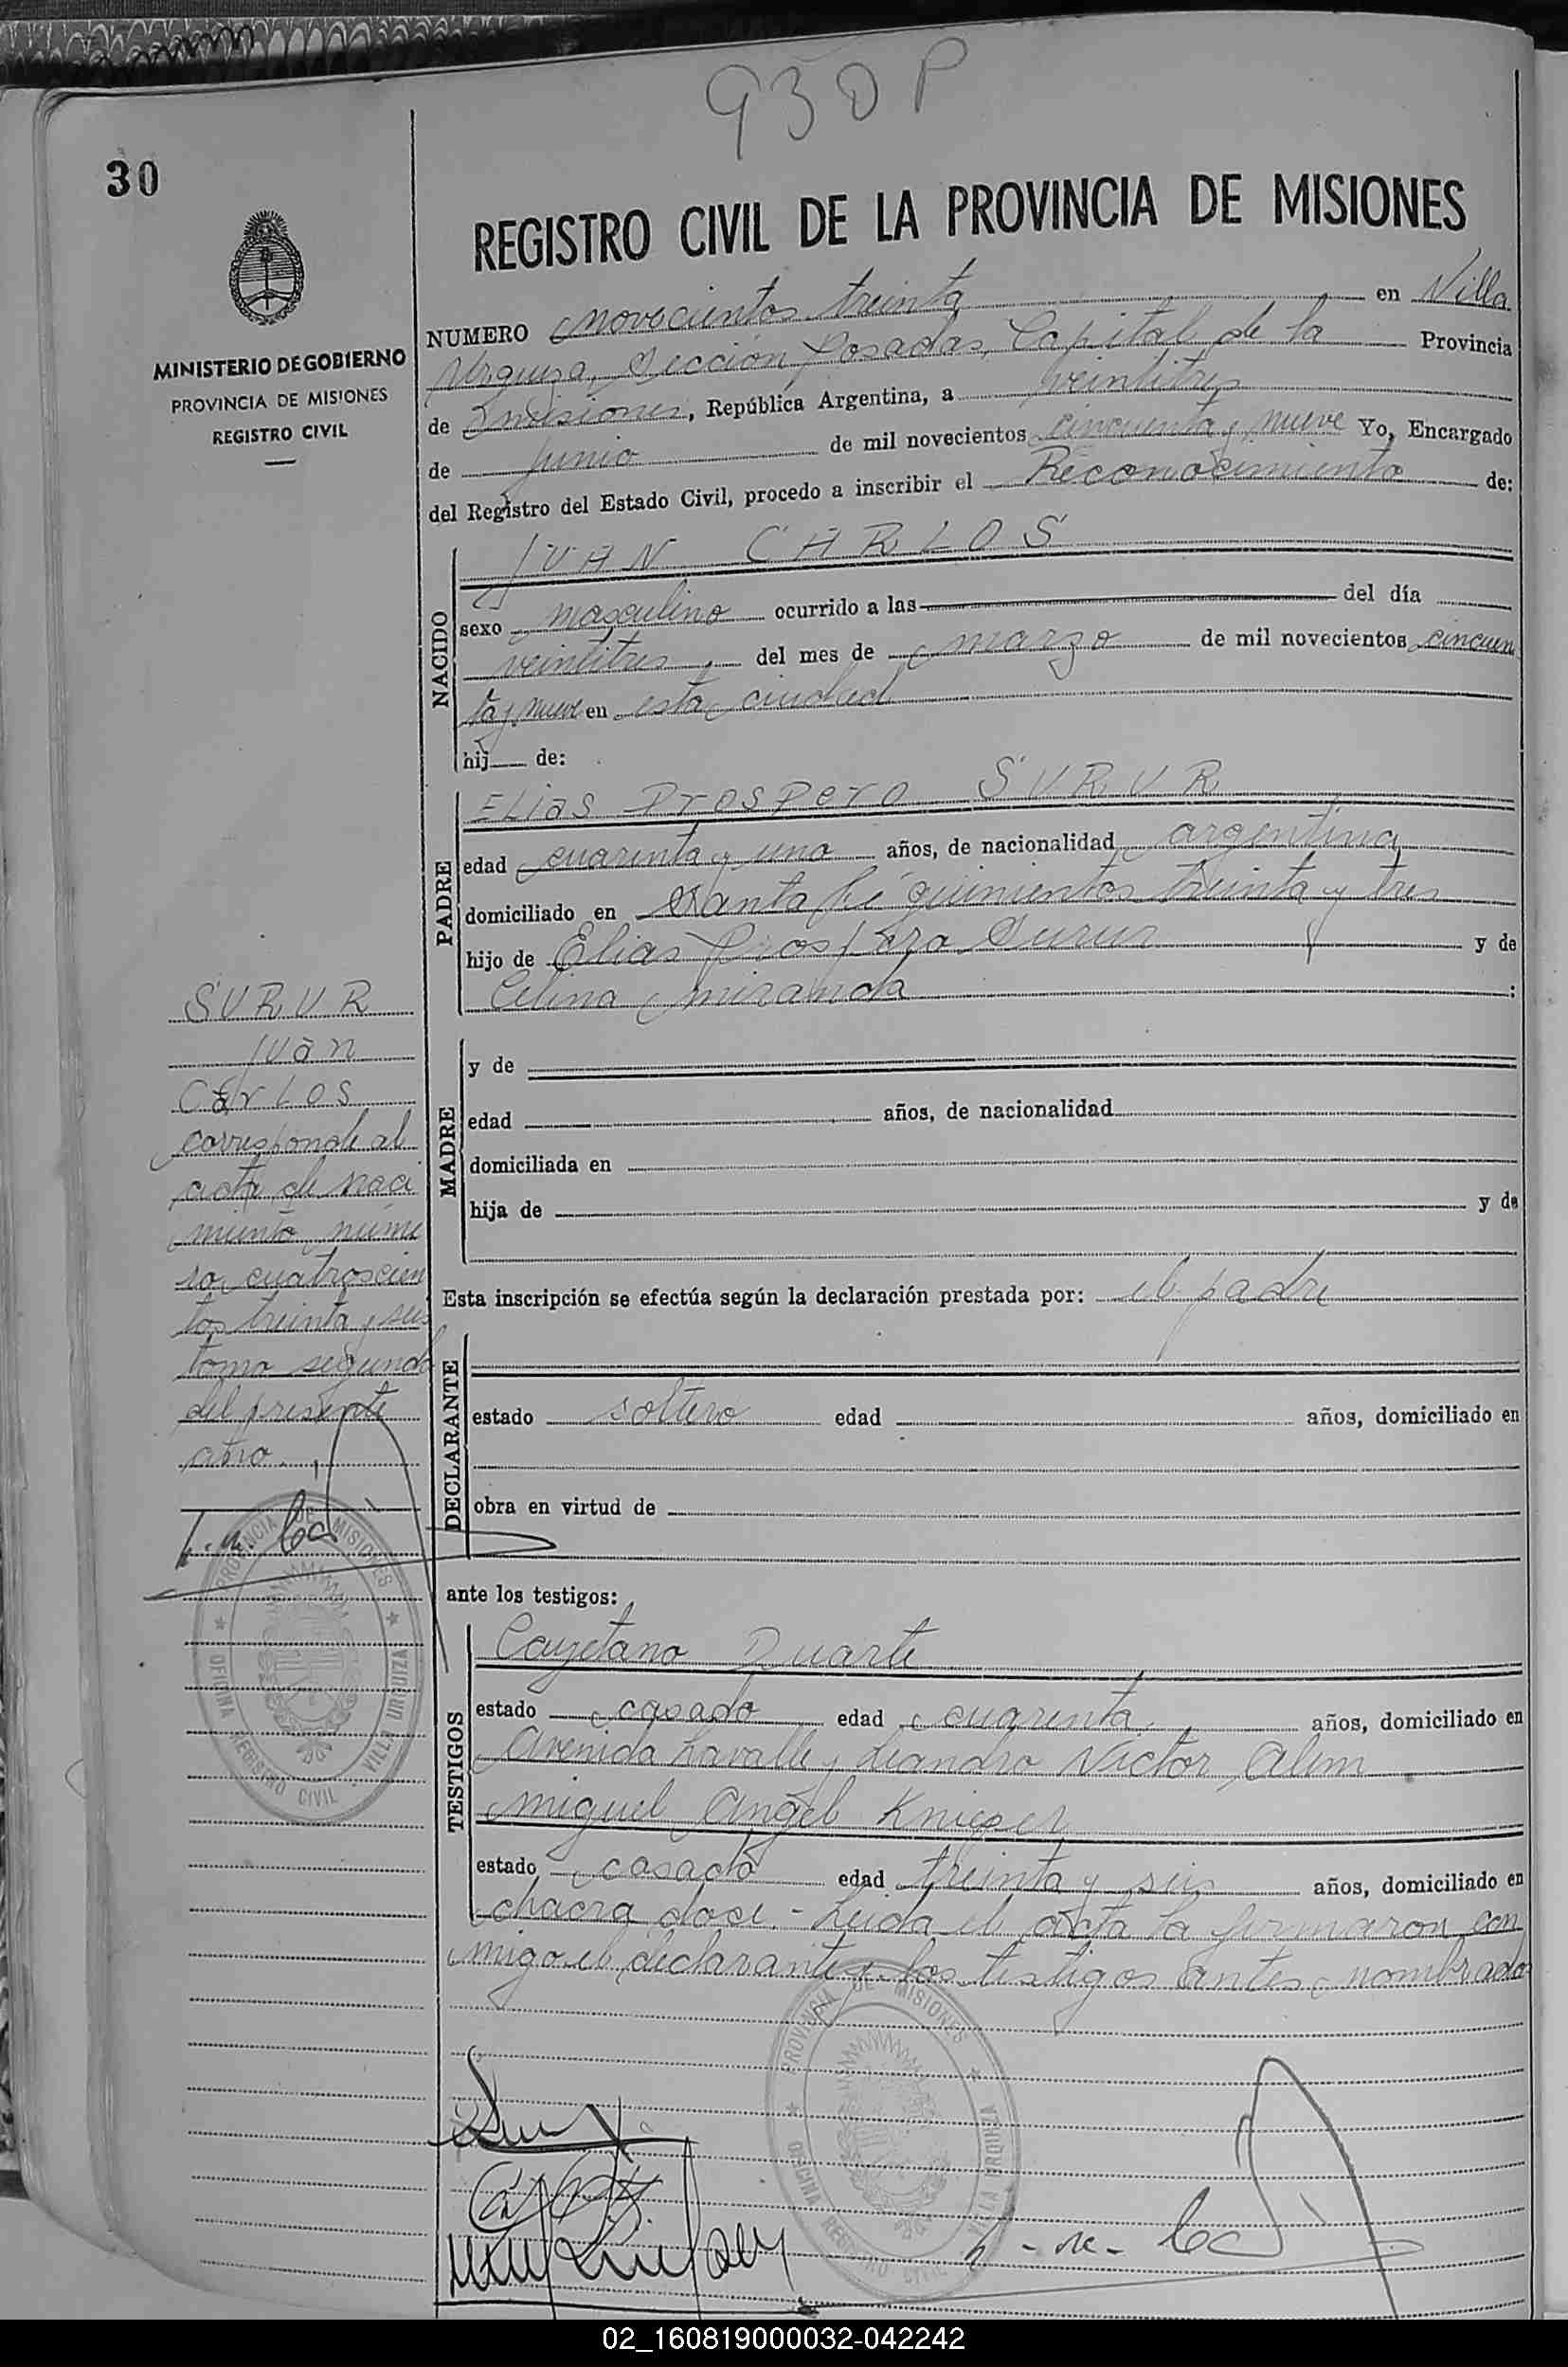 930 P
30
REGISTRO CIVIL DE LA PROVINCIA DE MISIONES
MINISTERIO DE GOBIERNO
PROVINCIA DE MISIONES
REGISTRO CIVIL
NUMERO novecientos treinta en Villa
Urquiza, Sección Posadas, Capital de la Provincia
de Misiones, República Argentina, a veintitres
de junio de mil novecientos cincuenta y nueve Yo, Encargado
del Registro del Estado Civil, procedo a inscribir el Reconocimiento de:
NACIDO
JUAN CARLOS
sexo masculino ocurrido a las del día
veintitres del mes de marzo de mil novecientos cincuen
ta y nueve en esta ciudad
hij de:
PADRE
ELias Prospero SURUR
edad cuarenta y uno años, de nacionalidad argentina
domiciliado en Santa Fé quinientos treinta y tres
hijo de Elias Prospero Surur y de
Celina Miranda :
MADRE
y de
edad años, de nacionalidad
domiciliada en
hija de y de
Esta inscripción se efectúa según la declaración prestada por: el padre
DECLARANTE
estado soltero edad años, domiciliado en
obra en virtud de
ante los testigos:
TESTIGOS
Cayetano Duarte
estado casado edad cuarenta años, domiciliado en
Avenida Lavalle y Leandro Victor Alem
Miguel Angel
estado casado edad treinta y seis años, domiciliado en
chacra doce.- Leida el acta la firmaron con
migo el declarante y los testigos antes nombrados
SURUR
Juan
CarLos
corresponde al
acta de naci
miento núme
ro cuatroscien
tos treinta y seis
tomo segundo
del presente
año.
PROVINCIA DE MISIONES
OFICINA REGISTRO CIVIL VILLA URQUIZA
PROVINCIA DE MISIONES
OFICINA REGISTRO CIVIL VILLA URQUIZA
02_160819000032-042242